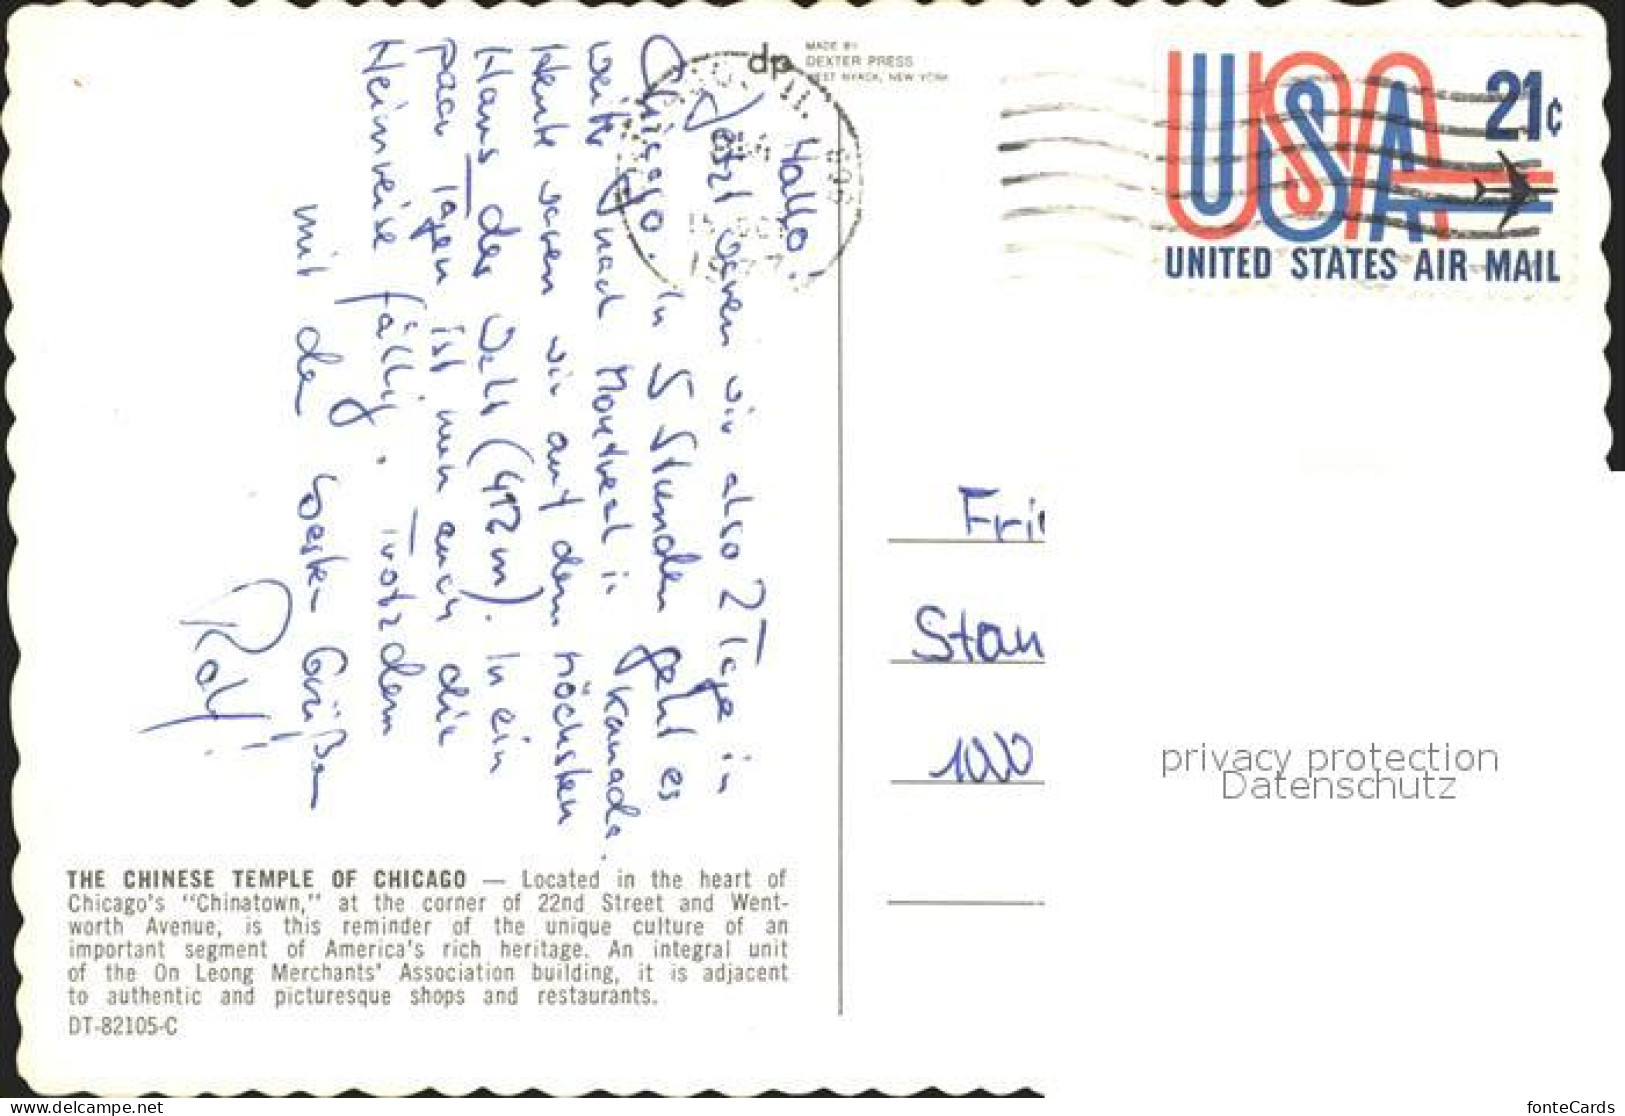 Hallo!
Jetzt waren wir also 2 Tage in
Chicago. In 5 Stunden geht es
weiter nach Montreal in Kanada.
Heute waren wir auf dem höchsten
Haus der Welt (412m). In ein
paar Tagen ist nun auch die
Heimreise fällig. Trotzdem
mit den besten Grüßen
Rolf
dp
MADE BY
DEXTER PRESS
WEST NYACK, NEW YORK
USA
21c
UNITED STATES AIR MAIL
Fri
Stan
1000
privacy protection
Datenschutz
THE CHINESE TEMPLE OF CHICAGO — Located in the heart of
Chicago's "Chinatown," at the corner of 22nd Street and Went-
worth Avenue, is this reminder of the unique culture of an
important segment of America's rich heritage. An integral unit
of the On Leong Merchants' Association building, it is adjacent
to authentic and picturesque shops and restaurants.
DT-82105-C
www.delcampe.net
fonteCards